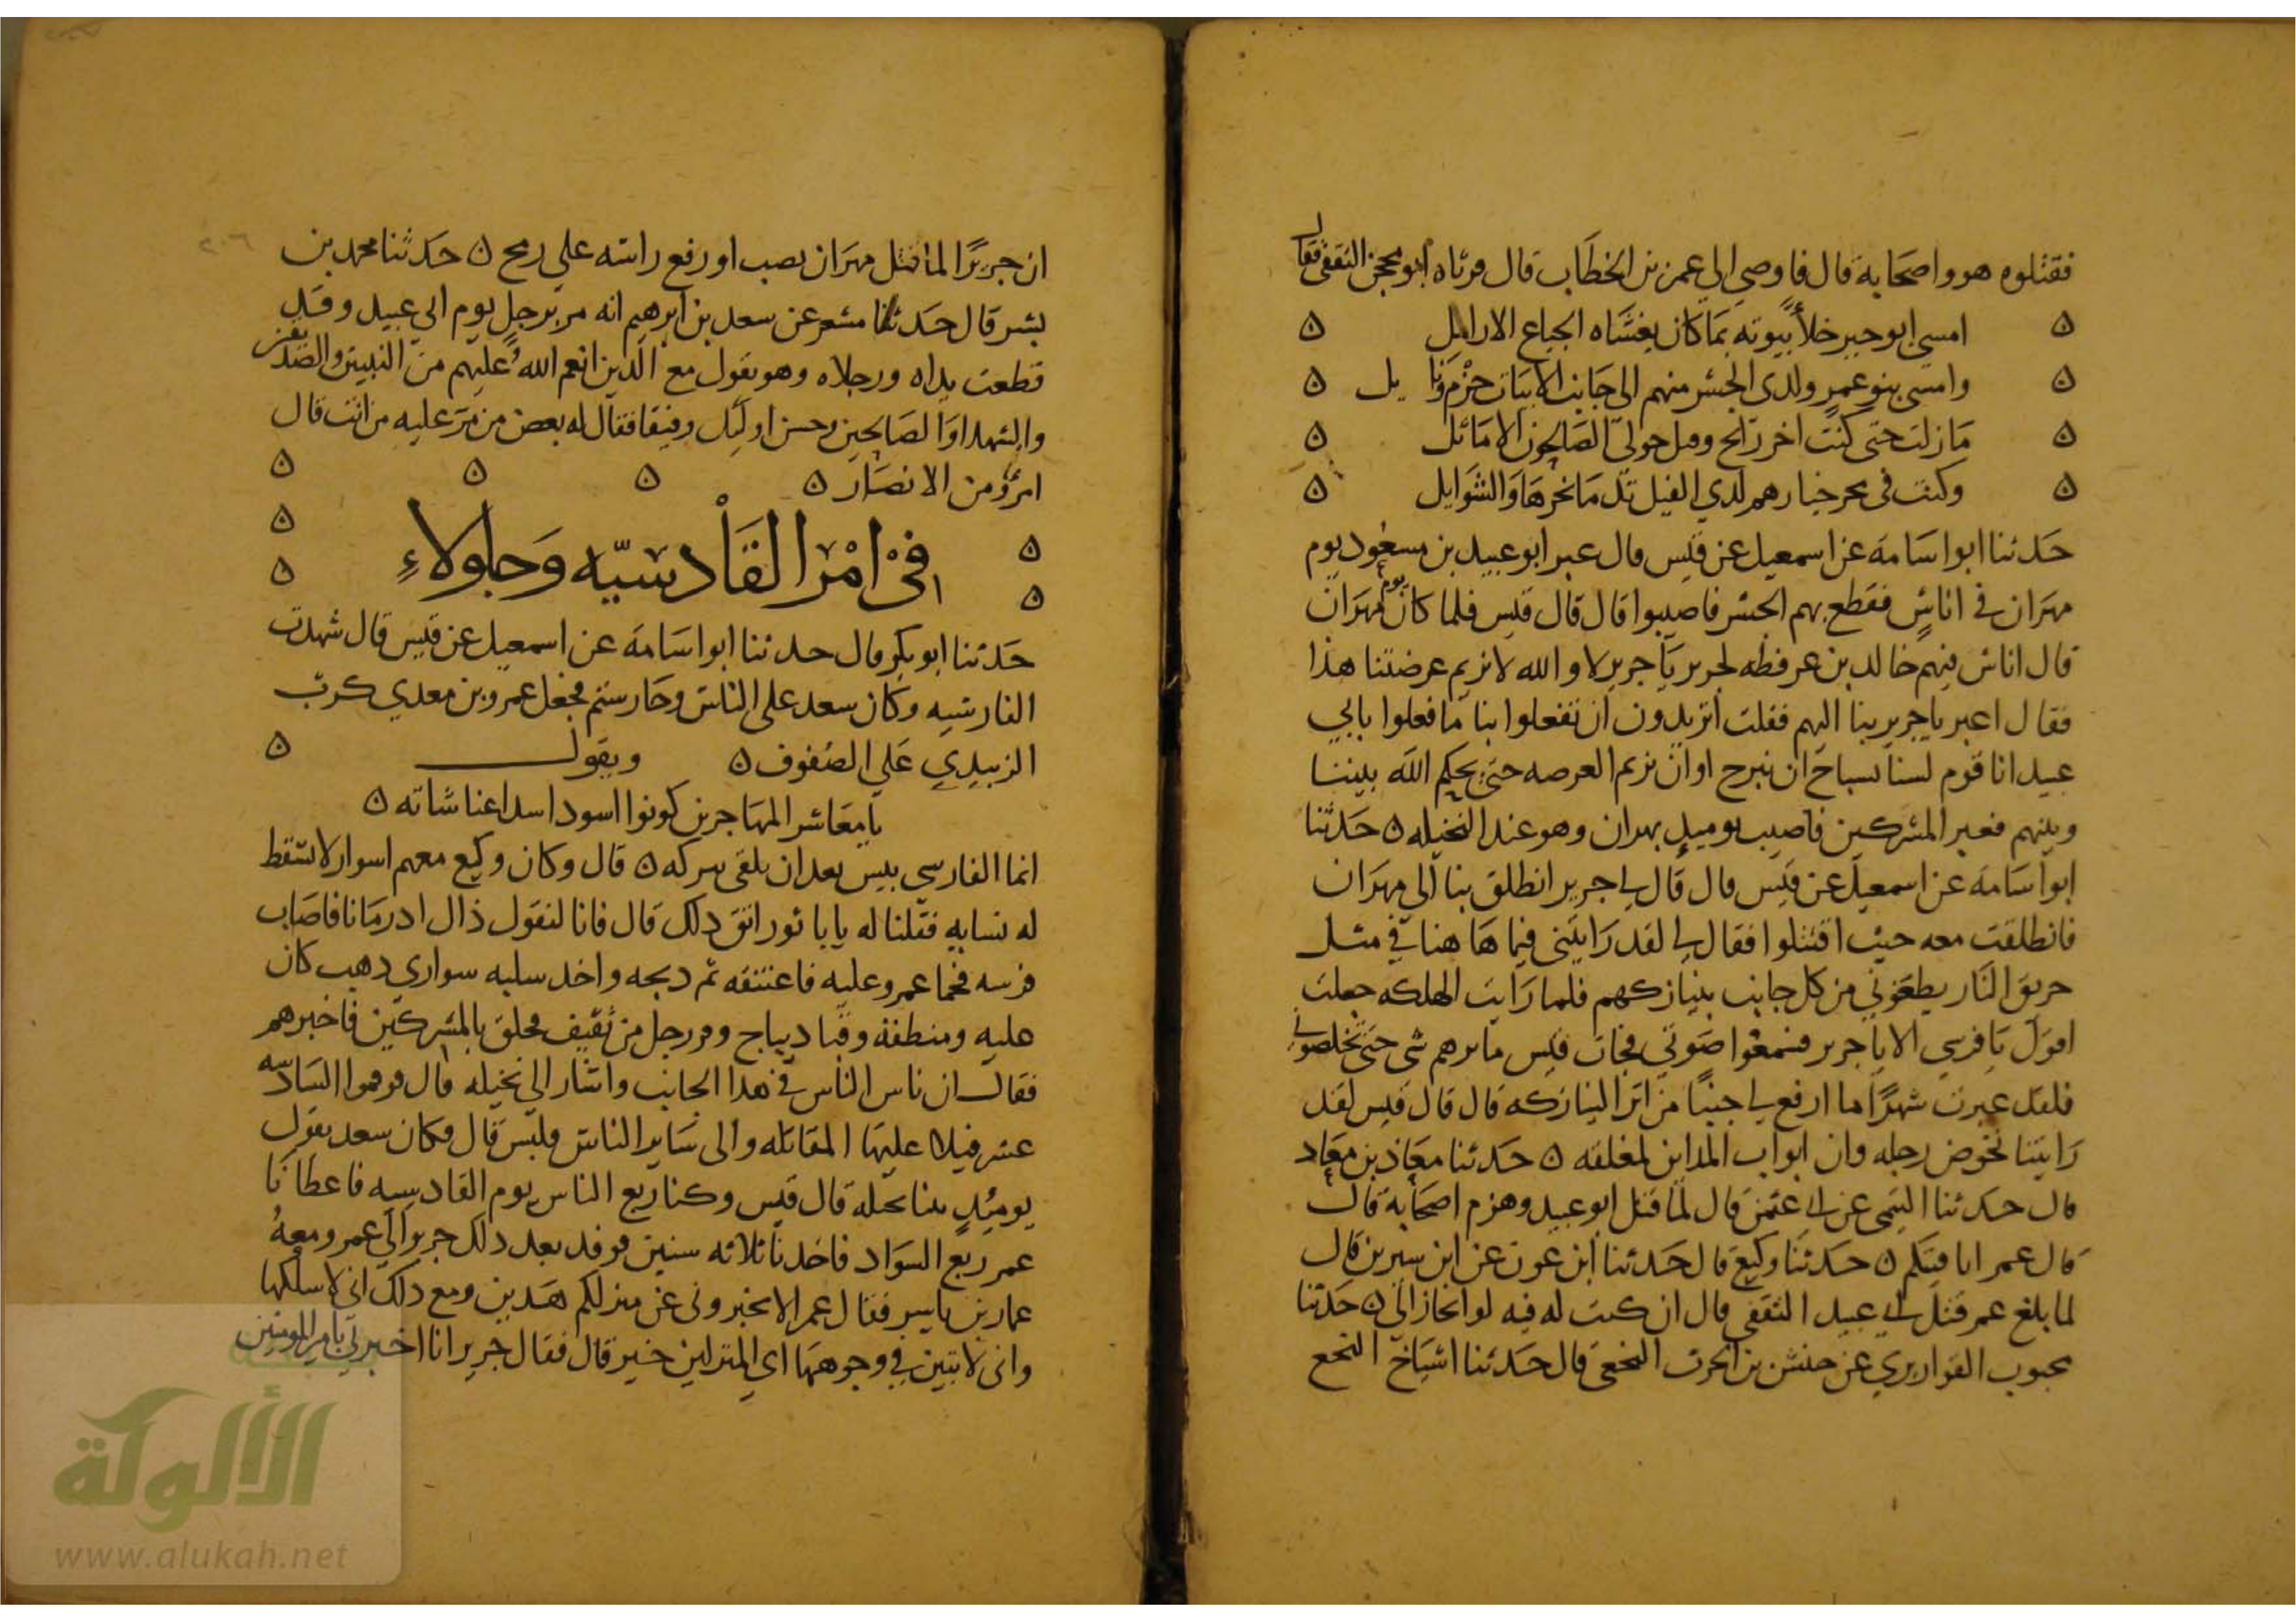 فقتلوه هو واصحابه قال فاوصي الي عمر بن الخطاب قال فرثاه ابو محجن الثقفي فقال
امسي ابو جبر خلا بيوته بما كان يغشاه الجياع الارامل
وامسي بنو عمرو لدي الجسر منهم الي جانب الابيات حزم ونايل
مازلت حتي كنت اخر رايح وقتل حولي الصالحون الاماثل
وكنت في نحر خيارهم لدي الفيل تدمي نحرها والشوايل
حدثنا ابو اسامة عن اسمعيل عن قيس قال عبر ابو عبيد بن مسعود يوم
مهران في اناس فقطع بهم الجسر فاصيبوا قال قال قيس فلما كان يوم مهران
قال اناس فيهم خالد بن عرفطه لجرير يا جرير لا والله لا نريم عرضتنا هذا
فقال اعبر يا جرير بنا اليهم فقلت اتريدون ان تفعلوا بنا ما فعلوا بابي
عبيد انا قوم لسنا بسباح ان نبرح او ان نريم العرصه حتي يحكم الله بيننا
وبينهم فعبر المشركين فاصيب يوميذ مهران وهو عند النخيله ن حدثنا
ابو اسامة عن اسمعيل عن قيس قال قال لي جرير انطلق بنا الي مهران
فانطلقت معه حيث اقتتلوا فقال لي لقد رايتني فيما ها هنا في مثل
حريق النار يطعنوني من كل جانب بنيازكهم فلما رايت الهلكه جعلت
اقول يا فرسي الا يا جرير فسمعوا صوتي فجات قيس ما يردهم شي حتي تخلصوني
فلقد عبرت شهرا ما ارفع لي جنبا من اثر النيازكه قال قال قيس لقد
رايتنا نخوض دجله وان ابواب المداين لمغلقه ن حدثنا معاذ بن معاد
قال حدثنا التيمي عن ابي عثمن قال لما قتل ابو عبيد وهزم اصحابه قال
قال عمر انا فيتكم ن حدثنا وكيع قال حدثنا ابن عون عن ابن سيرين قال
لما بلغ عمر قتل ابي عبيد الثقفي قال ان كنت له فيه لو انحاز الي ن حدثنا
محبوب القواريري عن حنش بن الحرث النخعي قال حدثنا اشياخ النخع
ان جريرا لما قتل مهران نصب او رفع راسه علي رمح ن حدثنا محمد بن
بشر قال حدثنا مسعر عن سعد بن ابرهيم انه مر برجل يوم ابي عبيد وقد
قطعت يداه ورجلاه وهو يقول مع الذين انعم الله عليهم من النبيين والصديقين
والشهدا والصالحين وحسن اوليك رفيقا فقال له بعض من مر عليه من انت قال
امرؤ من الانصار ن
في امر القادسيه وجلولاء
حدثنا ابو بكر قال حدثنا ابو اسامة عن اسمعيل عن قيس قال شهدت
القادسيه وكان سعد علي الناس وجا رستم فجعل عمرو بن معدي كرب
الزبيدي علي الصفوف ن ويقول
يا معاشر المهاجرين كونوا اسودا اسدا عنا شاته ن
انما الفارسي بيس بعد ان يلقي نيركه ن قال وكان وكيع معهم اسوار لا تسقط
له نسابه فقلنا له يابا ثور اتق ذلك قال فانا لنقول ذال اد رمانا فاصاب
فرسه فحما عمرو عليه فاعتنقه ثم دبحه واخد سلبه سواري دهب كان
عليه ومنطقة وقبا ديباج وفر رجل من ثقيف فخلق بالمشركين فاخبرهم
فقال ان ناس الناس في هدا الجانب واشار الي بجيله قال فرموا الينا سته
عشر فيلا عليها المقاتله والي ساير الناس فيلين قال وكان سعد يقول
يوميذ بنا بجيله قال قيس وكنا ربع الناس يوم القادسيه فاعطانا
عمر ربع السواد فاخدنا ثلاثه سنين فوفد بعد دلك جرير الي عمر ومعه
عمار بن ياسر فقال عمر الا تخبروني عن منزلكم هدين ومع دلك اني لاسلكها
واني لاتبين في وجوهكما اي المنزلين خير قال فقال جرير انا اخبرك يا امير المومنين
٢٠٦
الألوكة
www.alukah.net